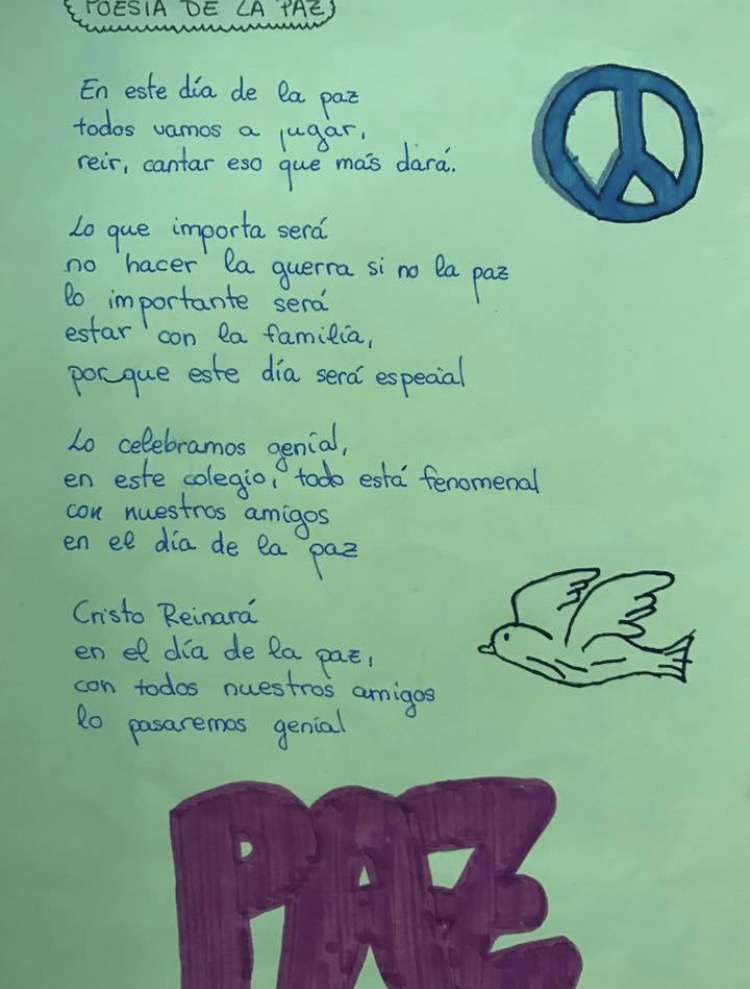 POESIA DE LA PAZ
En este día de la paz
todos vamos a jugar,
reir, cantar eso que más dará.
Lo que importa será
no hacer la guerra si no la paz
lo importante será
estar con la familia,
porque este día será especial
Lo celebramos genial,
en este colegio, todo está fenomenal
con nuestros amigos
en el día de la paz
Cristo Reinará
en el día de la paz,
con todos nuestros amigos
lo pasaremos genial
PAZ